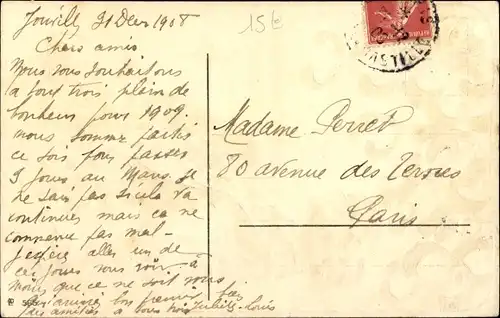 31 Dec 1908
15€
Chers amis
Nous vous souhaitons
a tout trois plein de
bonheur pour 1909.
nous somme partis
ce soir pour passer
3 jours au Mans. Je
ne sais pas si cela va
continuer mais ca ne
commence pas mal
j'espere aller un de
ces jours vous voir à
moins que ce ne soit vous
des amitiés a vous trois Juliette Louis
Madame Perret
80 avenue des Ternes
Paris